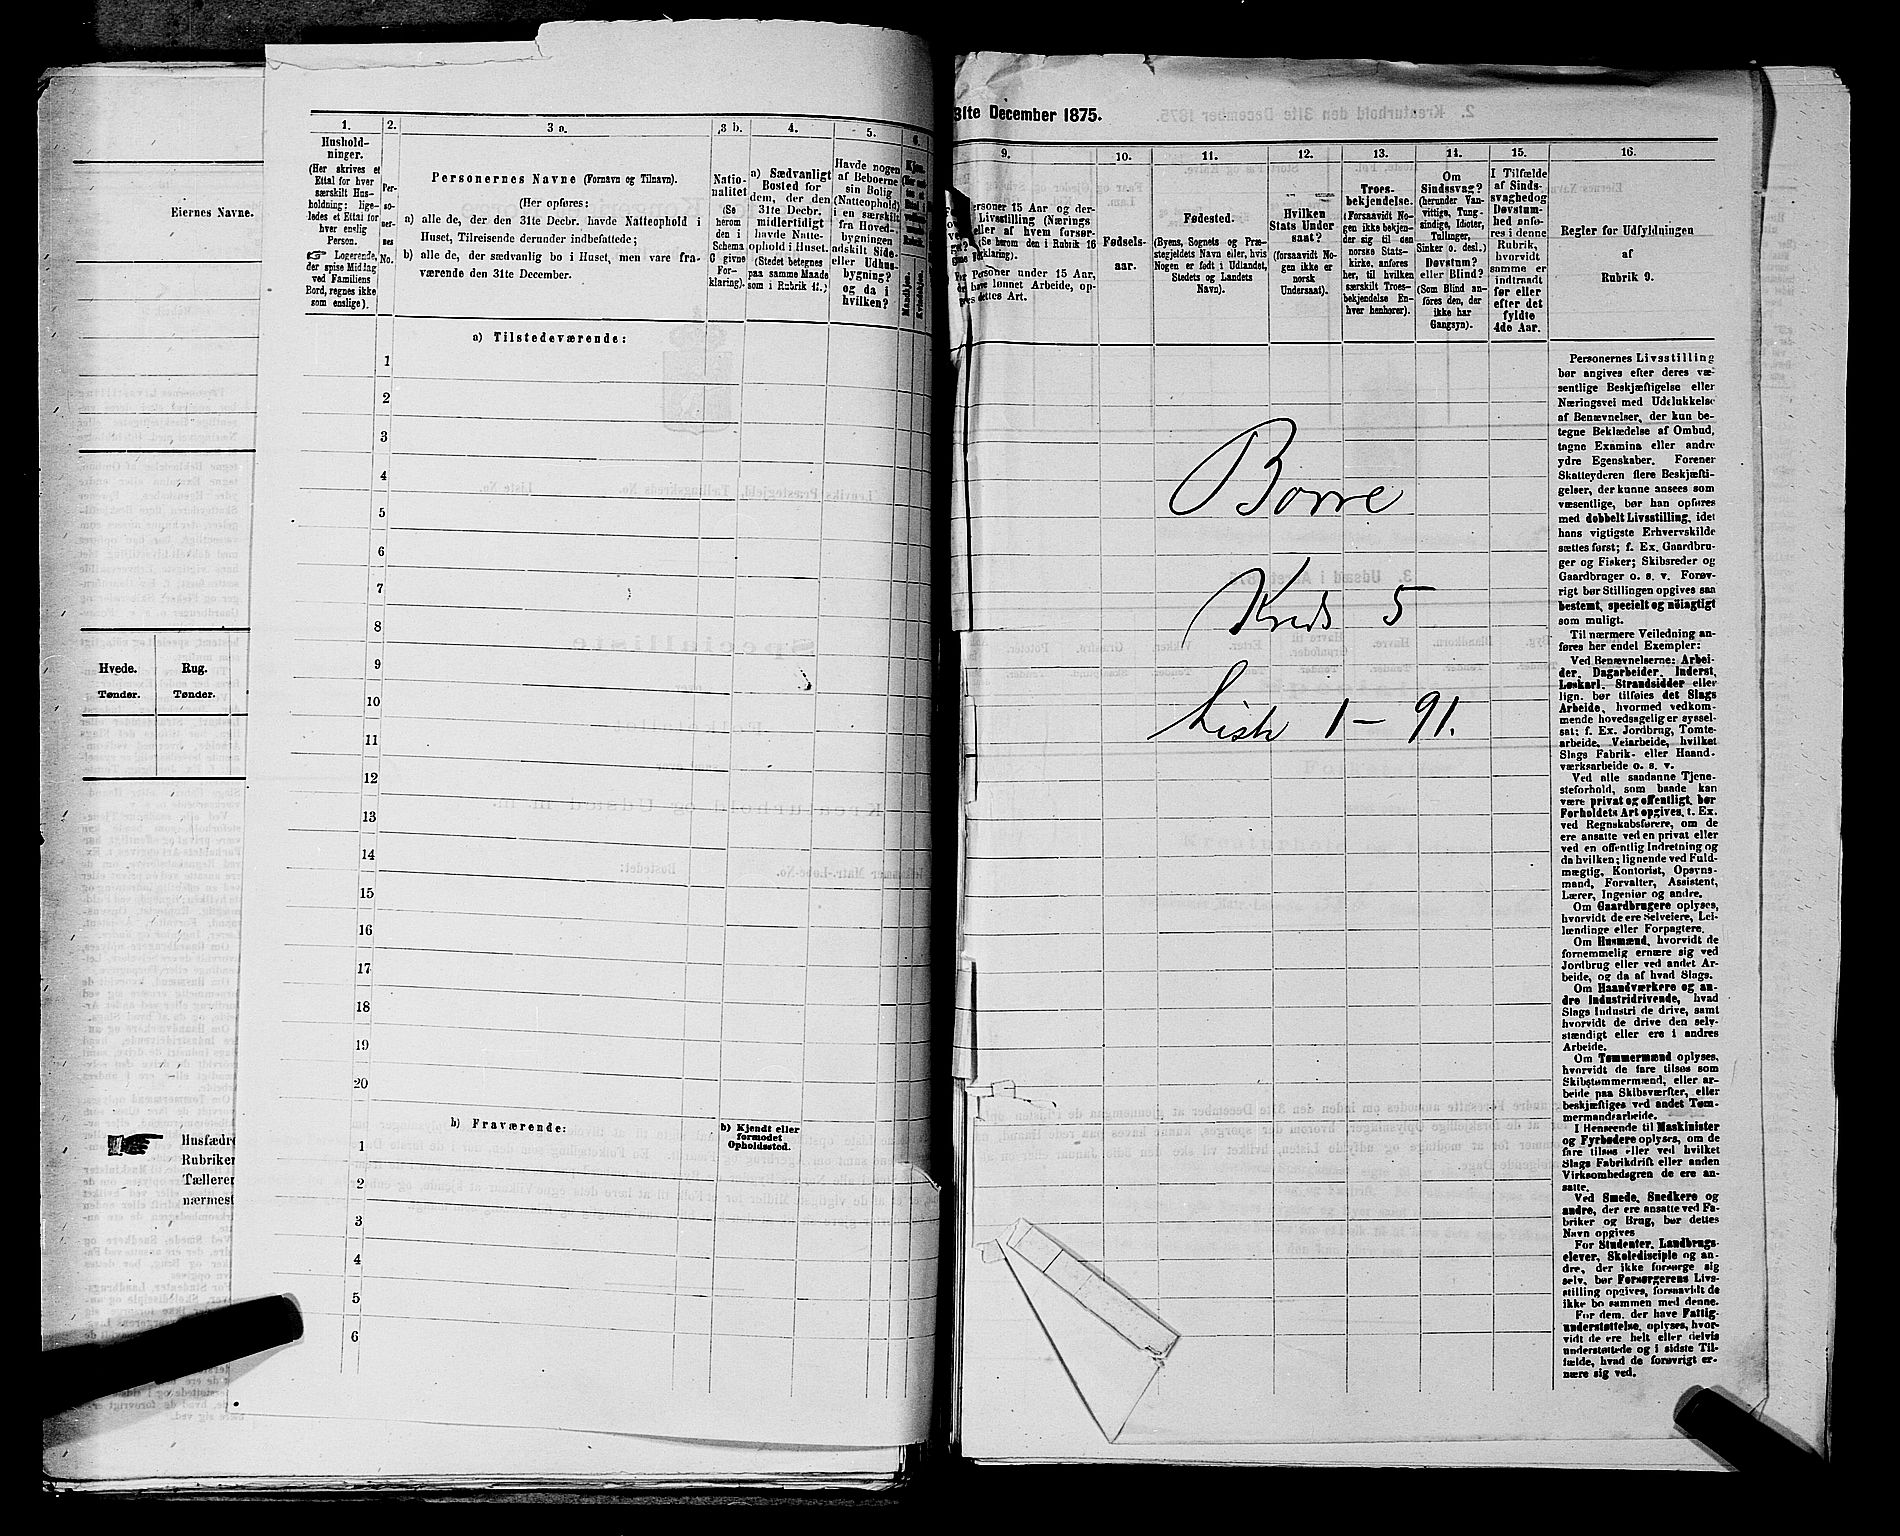 Eiernes Navne.
Hvede.
Tønder.
Rug.
Tønder.
Husfædre
Rubriker
Tællerer
nærmest
1.
Hushold-
ninger.
(Her skrives et
Ettal for hver
særskilt Hus-
holdning; lige-
ledes et Ettal for
hver enslig
Person.
Logerende,
der spise Middag
ved Familiens
Bord, regnes ikke
som enslige).
2.
Per-
so-
ner-
nes
No.
3 a.
Personernes Navne (Fornavn og Tilnavn).
(Her opføres:
a) alle de, der den 31te Decbr. havde Natteophold i
Huset, Tilreisende derunder indbefattede;
b) alle de, der sædvanlig bo i Huset, men vare fra-
værende den 31te December.
3 b.
Natio-
nalitet
(Se
herom
den i
Schema
G givne
For-
klaring).
4.
a) Sædvanligt
Bosted for
dem, der den
31te Decbr.
midlertidigt
havde Natte-
ophold i Huset.
(Stedet betegnes
paa samme Maade
som i Rubrik 11.)
5.
Havde nogen
af Beboerne
sin Bolig
(Natteophold)
i en særskilt
fra Hoved-
bygningen
adskilt Side-
eller Udhus-
bygning?
og da i
hvilken?
6.
Kjøn.
Mandkjøn.
Kvindekjøn.
a) Tilstedeværende:
1
2
3
4
5
6
7
8
9
10
11
12
13
14
15
16
17
18
19
20
b) Fraværende:
b) Kjendt eller
formodet
Opholdssted.
1
2
3
4
5
6
31te December 1875.
9.
Personer 15 Aar og der-
Livsstilling (Nærings
eller af hvem forsør-
(Se herom den i Rubrik 16
Forklaring).
Personer under 15 Aar,
have lønnet Arbeide, op-
dettes Art.
10.
Fødsels-
aar.
11.
Fødested.
(Byens, Sognets og Præ-
stegjeldets Navn eller, hvis
Nogen er født i Udlandet,
Stedets og Landets
Navn).
12.
Hvilken
Stats Under
saat?
(forsaavidt No-
gen ikke er
norsk
Undersaat).
13.
Troes-
bekjendelse.
(Forsaavidt No-
gen ikke bekjen-
der sig til den
norske Stats-
kirke, anføres
her, til hvilken
særskilt Troes-
bekjendelse En-
hver henhører).
14.
Om
Sindssvag?
(herunder Van-
vittige, Tung-
sindige, Idioter,
Tullinger,
Sinker o. desl.)
Døvstum?
eller Blind?
(Som Blind an-
føres den, der
ikke har
Gangsyn).
15.
I Tilfælde
af Sinds-
svaghed og
Døvstum-
hed anfø-
res i denne
Rubrik,
hvorvidt
samme er
indtraadt
før eller
efter det
fyldte
4de Aar.
16.
Regler før Udfyldningen
af
Rubrik 9.
Borre
Kreds 5
Liste 1 - 91.
Personernes Livsstilling
bør angives efter deres væ-
sentlige Beskjæftigelse eller
Næringsvei med Udelukkelse
af Benævnelser, der kun be-
tegne Beklædelse af Ombud,
tagne Examina eller andre
ydre Egenskaber. Forener
Skatteyderen flere Beskjæfti-
gelser, der kunne ansees som
væsentlige, bør han opføres
med dobbelt Livsstilling, idet
hans vigtigste Erhvervskilde
sættes først; f. Ex. Gaardbru-
ger og Fisker; Skibsreder og
Gaardbruger o. s. v. Forøv-
rigt bør Stillingen opgives saa
bestemt, specielt og nøiagtigt
som muligt.
Til nærmere Veiledning an-
føres her endel Exempler:
Ved Benævnelserne: Arbei-
der, Dagarbeider, Inderst,
Løskarl, Strandsidder eller
lign. bør tilføies det Slags
Arbeide, hvormed vedkom-
mende hovedsagelig er syssel-
sat; f. Ex. Jordbrug, Tomte-
arbeide, Veiarbeide, hvilket
Slags Fabrik- eller Haand-
værksarbeide o. s. v.
Ved alle saadanne Tjene-
steforhold, som baade kan
være privat og offentligt, bør
Forholdets Art opgives, t. Ex.
ved Regnskabsførere, om de
ere ansatte ved en privat eller
ved en offentlig Indretning og
da hvilken; lignende ved Fuld-
mægtig, Kontorist, Opsyns-
mand, Forvalter, Assistent,
Lærer, Ingeniør og andre.
Om Gaardbrugere oplyses,
hvorvidt de ere Selveiere, Lei-
lændinge eller Forpagtere.
Om Husmænd, hvorvidt de
fornemmelig ernære sig ved
Jordbrug eller ved andet Ar-
beide, og da af hvad Slags.
Om Haandværkere og an-
dre Industridrivende, hvad
Slags Industri de drive, samt
hvorvidt de drive den selv-
stændigt eller ere i andres
Arbeide.
Om Tømmermænd oplyses,
hvorvidt de fare tilsøs som
Skibstømmermænd, eller ar-
beide paa Skibsværfter, eller
beskjæftiges ved andet Tøm-
mermandsarbeide.
I Henseende til Maskinister
og Fyrbødere oplyses, om de
fare tilsøs eller ved hvilket
Slags Fabrikdrift eller anden
Virksomhedsgren de ere an-
satte.
Ved Smede, Snedkere og
andre, der ere ansatte ved Fa-
briker og Brug, bør dettes
Navn opgives
For Studenter, Landbrugs-
elever, Skoledisciple og an-
dre, der ikke forsørge sig
selv, bør Forsørgerens Livs-
stilling opgives, forsaavidt de
ikke bo sammen med denne.
For dem, der have Fattig-
understøttelse, oplyses, hvor-
vidt de ere helt eller delvis
understøttede og i sidste Til-
fælde, hvad de forøvrigt er-
nære sig ved.